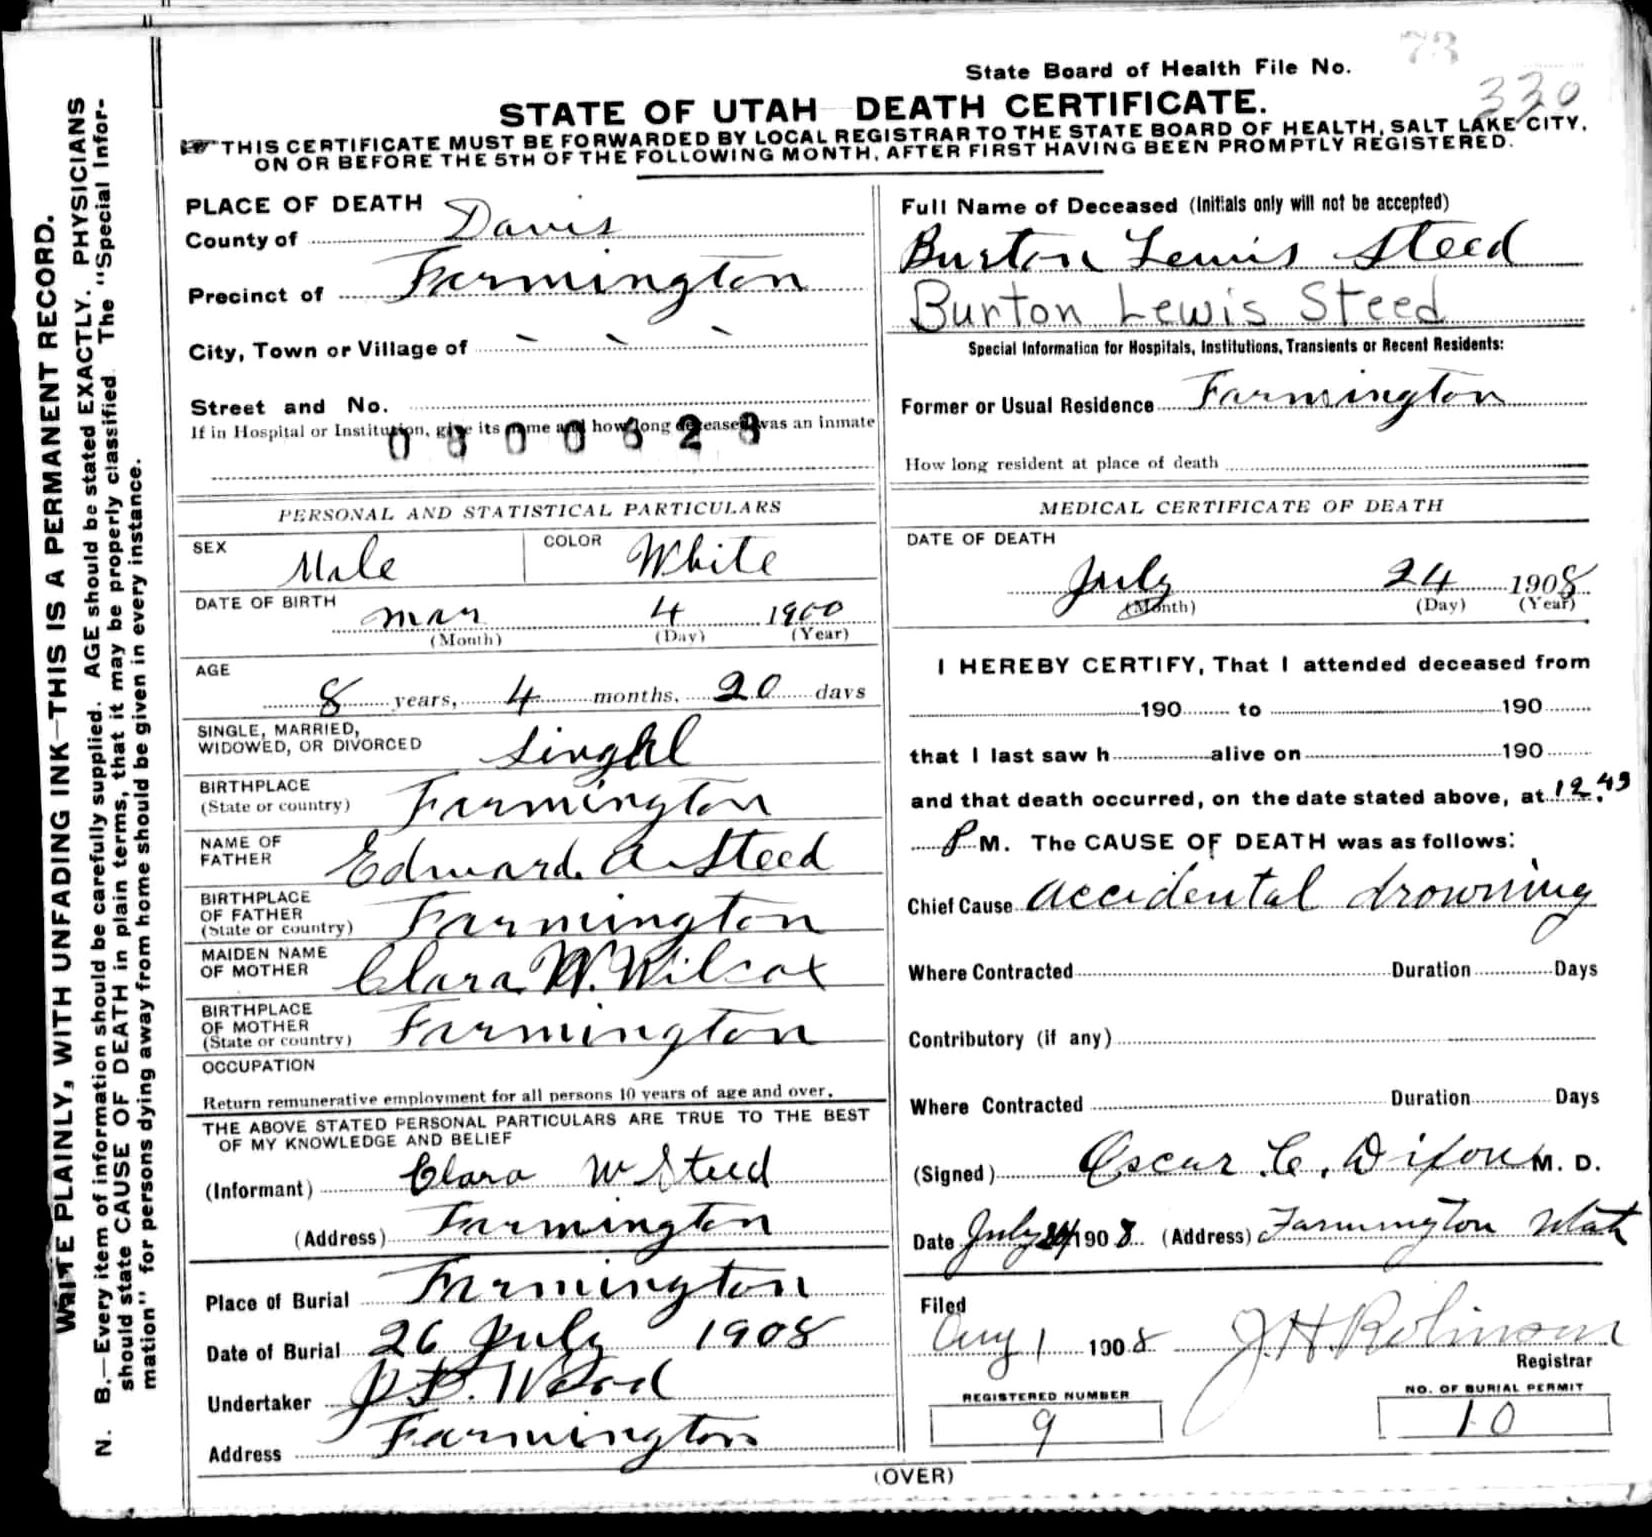 73
State Board of Health File No.
330
STATE OF UTAH DEATH CERTIFICATE.
THIS CERTIFICATE MUST BE FORWARDED BY LOCAL REGISTRAR TO THE STATE BOARD OF HEALTH, SALT LAKE CITY,
ON OR BEFORE THE 5TH OF THE FOLLOWING MONTH, AFTER FIRST HAVING BEEN PROMPTLY REGISTERED.
WRITE PLAINLY, WITH UNFADING INK—THIS IS A PERMANENT RECORD.
N. B.—Every item of information should be carefully supplied. AGE should be stated EXACTLY. PHYSICIANS
should state CAUSE OF DEATH in plain terms, that it may be properly classified. The "Special Infor-
mation" for persons dying away from home should be given in every instance.
PLACE OF DEATH
County of Davis
Precinct of Farmington
City, Town or Village of - - -
Street and No.
If in Hospital or Institution, give its name and how long deceased was an inmate
PERSONAL AND STATISTICAL PARTICULARS
SEX Male COLOR White
DATE OF BIRTH Mar 4 1900
(Month) (Day) (Year)
AGE
8 years, 4 months, 20 days
SINGLE, MARRIED,
WIDOWED, OR DIVORCED
BIRTHPLACE
(State or country) Farmington
NAME OF
FATHER Edward A Steed
BIRTHPLACE
OF FATHER
(State or country) Farmington
MAIDEN NAME
OF MOTHER Clara W. Wilcox
BIRTHPLACE
OF MOTHER
(State or country) Farmington
OCCUPATION
Return remunerative employment for all persons 10 years of age and over.
THE ABOVE STATED PERSONAL PARTICULARS ARE TRUE TO THE BEST
OF MY KNOWLEDGE AND BELIEF
(Informant) Clara W Steed
(Address) Farmington
Place of Burial Farmington
Date of Burial 26 July 1908
Undertaker Wood
Address Farmington
Full Name of Deceased (Initials only will not be accepted)
Burton Lewis Steed
Burton Lewis Steed
Special Information for Hospitals, Institutions, Transients or Recent Residents:
Former or Usual Residence Farmington
How long resident at place of death
MEDICAL CERTIFICATE OF DEATH
DATE OF DEATH
July 24 1908
(Month) (Day) (Year)
I HEREBY CERTIFY, That I attended deceased from
190 to 190
that I last saw h alive on 190
and that death occurred, on the date stated above, at 12.43
P M. The CAUSE OF DEATH was as follows:
Chief Cause accidental drowning
Where Contracted Duration Days
Contributory (if any)
Where Contracted Duration Days
(Signed) Oscar C. Dixon M. D.
Date July 24 1908 (Address) Farmington Utah
Filed
Aug 1 1908 J. H. Robinson
Registrar
REGISTERED NUMBER
9
NO. OF BURIAL PERMIT
10
(OVER)